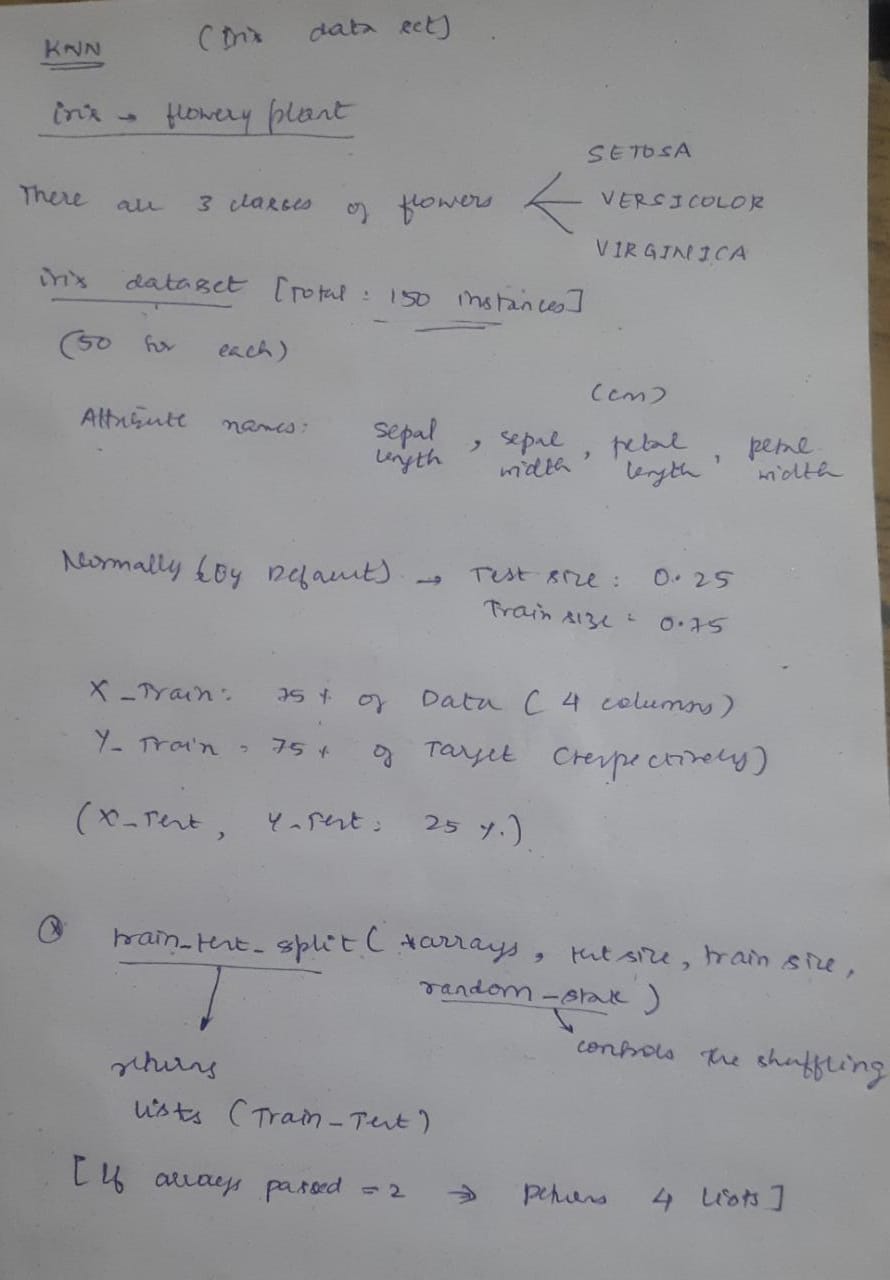 KNN (Iris data set)
iris → flowery plant
There are 3 classes of flowers
SETOSA
VERSICOLOR
VIRGINICA
iris dataset [Total : 150 instances]
(50 for each)
(cm)
Attribute names: sepal length, sepal width, petal length, petal width
Normally (By Default) → Test size : 0.25
Train size : 0.75
X_Train : 75 % of Data (4 columns)
Y_Train : 75 % of Target (respectively)
(X_Test, Y_Test : 25 %.)
* train_test_split (*arrays, test size, train size,
random_state)
controls the shuffling
returns
lists (Train_Test)
[If arrays passed = 2 ⇒ Returns 4 lists]